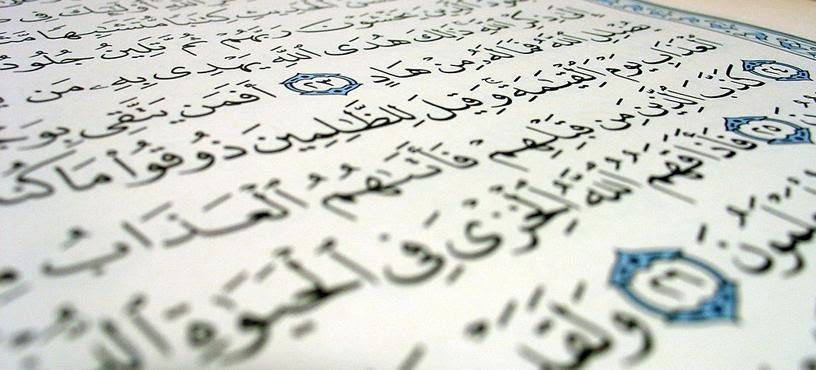 كِتَٰبًا مُّتَشَٰبِهًا
رَبَّهُمْ ثُمَّ تَلِينُ جُلُودُ
ٱللَّهِ ذَٰلِكَ هُدَى ٱللَّهِ يَهْدِى بِهِۦ مَن
يُضْلِلِ ٱللَّهُ فَمَا لَهُۥ مِنْ هَادٍ ٢٣ أَفَمَن يَتَّقِى بِوَجْ
ٱلْعَذَابِ يَوْمَ ٱلْقِيَٰمَةِ وَقِيلَ لِلظَّٰلِمِينَ ذُوقُوا۟ مَا كُن
٢٤ كَذَّبَ ٱلَّذِينَ مِن قَبْلِهِمْ فَأَتَىٰهُمُ ٱلْعَذَابُ مِ
٢٥ فَأَذَاقَهُمُ ٱللَّهُ ٱلْخِزْىَ فِى ٱلْحَيَوٰةِ ٱلدُّ
يَعْلَمُونَ ٢٦ وَلَقَدْ